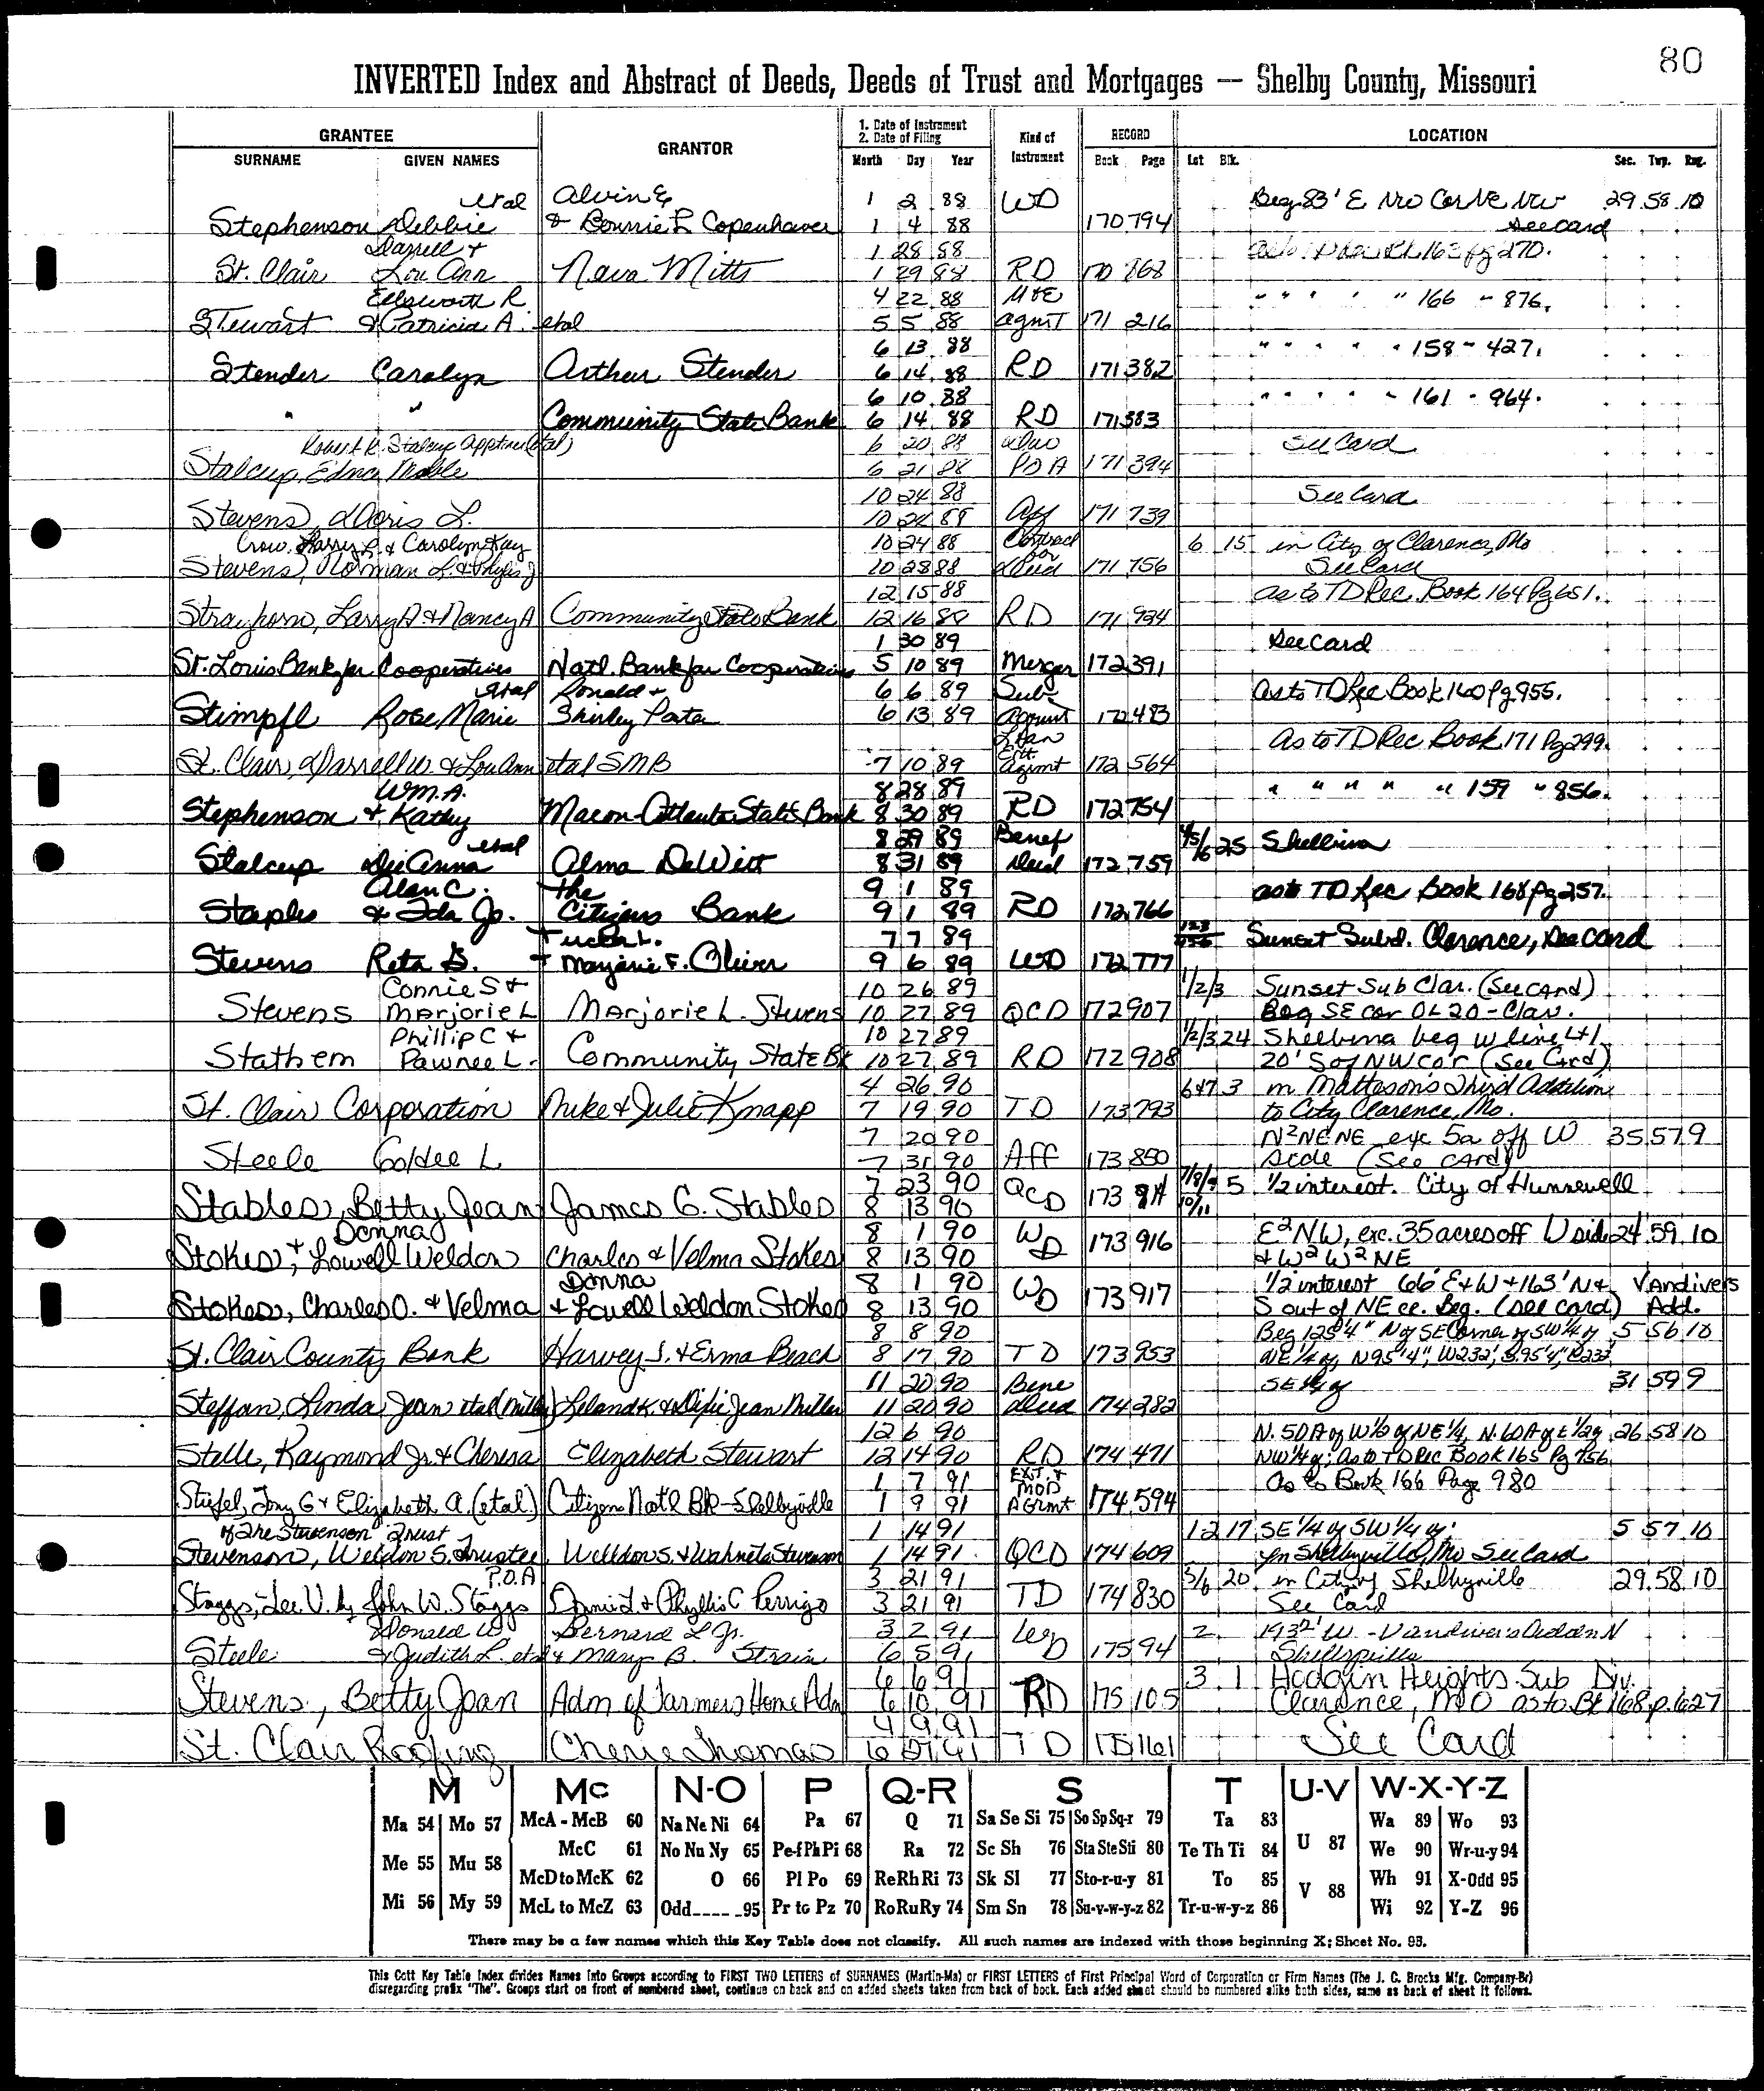 80
INVERTED Index and Abstract of Deeds, Deeds of Trust and Mortgages — Shelby County, Missouri
GRANTEE
SURNAME GIVEN NAMES
GRANTOR
1. Date of Instrument
2. Date of Filing
Month Day Year
Kind of Instrument
RECORD
Book Page
LOCATION
Lot Blk. Sec. Twp. Rng.
etal Alvin E 1 2 88 WD Beg 83' E NW Cor NE NW 29 58 10
Stephenson Debbie & Bonnie L Copenhaver 1 4 88 170 794 See card
Darrell & 1 28 88 Bk 163 pg 270.
St. Clair Lou Ann Neva Mitts 1 29 88 RD 170 868
Ellsworth R 4 22 88 " " " " " 166 " 876.
Stewart & Patricia A. etal 5 5 88 agmt 171 216
6 13 88 " " " " " 158 " 427.
Stender Carolyn Arthur Stender 6 14 88 RD 171 382
6 10 88 " " " " " 161 " 964.
" " Community State Bank 6 14 88 RD 171 383
6 20 88 See Card
Stalcup, Edna Mable 6 21 88 POA 171 394
10 24 88 See Card
Stevens, Doris L. 10 24 88 Aff 171 739
Crow, Larry L. & Carolyn Kay 10 24 88 Contract for 6 15 in City of Clarence, Mo
Stevens, Norman L. & Phylis J 10 28 88 Deed 171 756 See Card
12 15 88 as to TD Rec. Book 164 Pg 651.
Strayhorn, Larry D & Nancy A Community State Bank 12 16 88 RD 171 924
1 30 89 See Card
St. Louis Bank for Cooperatives Natl. Bank for Cooperatives 5 10 89 Merger 172 391
etal Ronald & 6 6 89 Sub- As to TD Rec Book 160 Pg 955.
Stimpfl Rose Marie Shirley Porter 6 13 89 Agrmt 172 483
Loan As to TD Rec Book 171 Pg 299.
St. Clair, Darrell W. & Lou Ann etal SMB 7 10 89 Ext. Agrmt 172 564
WM. A. 8 28 89 " " " " " 159 " 856.
Stephenson & Kathy Macon-Atlanta State Bank 8 30 89 RD 172 754
etal 8 29 89 Benef 4/5/6 25 Shelbina
Stalcup DeeAnna Alma DeWitt 8 31 89 Deed 172 759
Alan C. The 9 1 89 as to TD Rec Book 168 pg 257.
Staples & Ida Jo. Citizens Bank 9 1 89 RD 172 766
Tucker L. 7 7 89 Sunset Subd. Clarence, See card
Stevens Reta G. & Marjorie F. Oliver 9 6 89 WD 172 777
Connie S & 10 26 89 1/2/3 Sunset Sub Clar. (See card)
Stevens Marjorie L Marjorie L. Stevens 10 27 89 QCD 172 907 Beg SE cor OL 20 - Clar.
Phillip C & 10 27 89 1/2/3 24 Shelbina beg w line Lt 1
Stathem Pawnee L. Community State Bk 10 27 89 RD 172 908 20' S of NW cor (See Card)
4 26 90 6&7 3 in Matteson's Third Addition
St. Clair Corporation Mike & Julie Knapp 7 19 90 TD 173 793 to City Clarence, Mo.
7 20 90 N²NENE exc 5a off W 35 57 9
Steele Goldee L 7 31 90 Aff 173 850 side (See card)
7 23 90 QCD 7/8/9 5 1/2 interest. City of Hunnewell
Stables, Betty Jean James G. Stables 8 13 90 173 10/11
Donna 8 1 90 WD E²NW, exc. 35 acres off W side 24 59 10
Stokes, & Lowell Weldon Charles & Velma Stokes 8 13 90 173 916 & W²W²NE
Donna 8 1 90 WD 1/2 interest 66' E&W & 163' N& Vandivers
Stokes, Charles O. & Velma & Lowell Weldon Stokes 8 13 90 173 917 S out of NE cc. Beg. (see card) Add.
8 8 90 Beg 125'4" N of SE Corner of SW 1/4 of 5 56 10
St. Clair County Bank Harvey J. & Erma Beach 8 17 90 TD 173 953 NE 1/4 of, N95'4", W232', S95'4", E232'
11 20 90 Bene SE 1/4 of 31 59 9
Steffan, Linda Jean etal (Miller) Leland K. & Dixie Jean Miller 11 20 90 Deed 174 282
12 6 90 N. 50 A of W 1/2 of NE 1/4, N. 60 A of E 1/2 of 26 58 10
Stelle, Raymond Jr. & Cheresa Elizabeth Stewart 12 14 90 RD 174 471 NW 1/4 of; As to TD Rec Book 165 Pg 756
1 7 91 EXT. & MOD As to Book 166 Page 980
Stiefel, Tony G & Elizabeth A. (etal) Citizens Nat'l Bk - Shelbyville 1 9 91 AGRmt 174 594
of The Stevenson Trust 1 14 91 12 17 SE 1/4 of SW 1/4 of: 5 57 10
Stevenson, Weldon S. Trustee Welldon S. & Wahneta Stevenson 1 14 91 QCD 174 609 in Shelbyville, Mo See Card
P.O.A 3 21 91 5/6 20 in City of Shelbyville 29 58 10
Staggs, Lee V. by John W. Staggs Donnie L. & Phyllis C Perrigo 3 21 91 TD 174 830 See Card
Donald W Bernard L Jr. 3 2 91 WD 2 193½' W. - Vandiver's Addn N
Steele & Judith L. etal & Mary B. Strain 6 5 91 175 94 Shelbyville
6 6 91 3 1 Hodgin Heights Sub Div.
Stevens, Betty Jean Adm of Farmers Home Adm 6 10 91 RD 175 105 Clarence, MO as to Bk 168 p. 627
4 9 91
St. Clair Roofing Cherie Thomas 6 27 91 TD 175 161 See Card
M Mc N-O P Q-R S T U-V W-X-Y-Z
Ma 54 Mo 57 McA - McB 60 Na Ne Ni 64 Pa 67 Q 71 Sa Se Si 75 So Sp Sq-r 79 Ta 83 Wa 89 Wo 93
Me 55 Mu 58 McC 61 No Nu Ny 65 Pe-f Ph Pi 68 Ra 72 Sc Sh 76 Sta Ste Sti 80 Te Th Ti 84 U 87 We 90 Wr-u-y 94
McD to McK 62 O 66 Pl Po 69 Re Rh Ri 73 Sk Sl 77 Sto-r-u-y 81 To 85 V 88 Wh 91 X-Odd 95
Mi 56 My 59 McL to McZ 63 Odd---- 95 Pr to Pz 70 Ro Ru Ry 74 Sm Sn 78 Su-v-w-y-z 82 Tr-u-w-y-z 86 Wi 92 Y-Z 96
There may be a few names which this Key Table does not classify. All such names are indexed with those beginning X; Sheet No. 95.
This Cott Key Table Index divides Names into Groups according to FIRST TWO LETTERS of SURNAMES (Martin-Ma) or FIRST LETTERS of First Principal Word of Corporation or Firm Names (The J. C. Brocks Mfg. Company-Br)
disregarding prefix "The". Groups start on front of numbered sheet, continue on back and on added sheets taken from back of book. Each added sheet should be numbered alike both sides, same as back of sheet it follows.